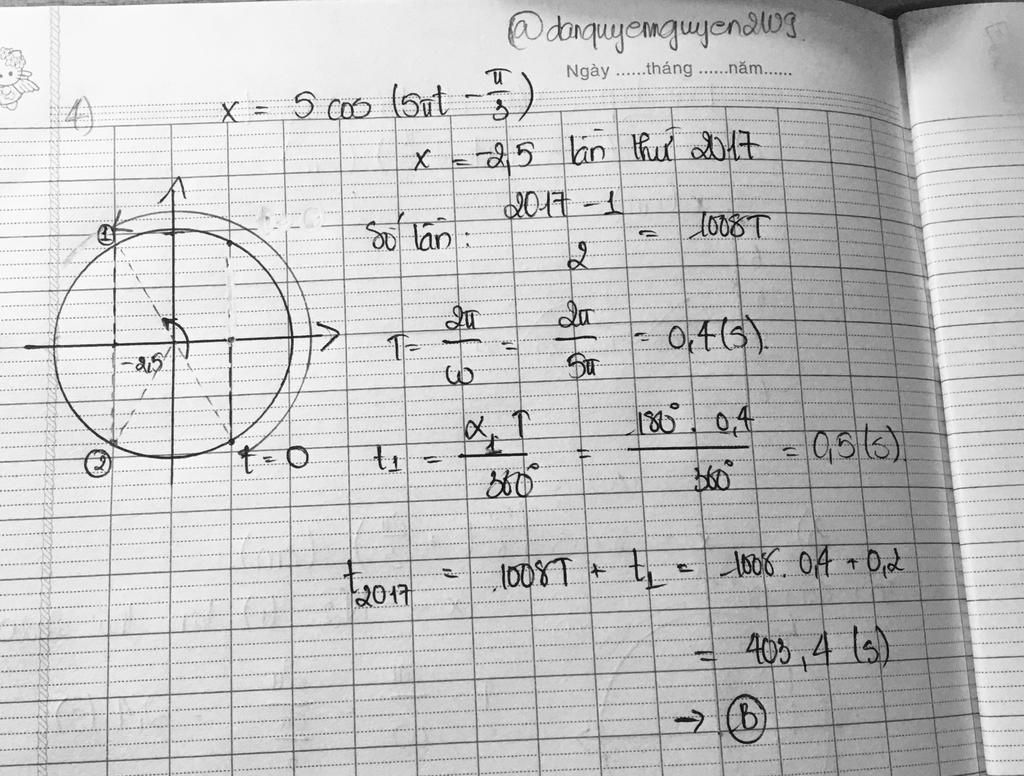 @danquyennguyen2109
Ngày ......tháng ......năm......
4)
x = 5 cos (5πt - π/3)
x = -2,5 lần thứ 2017
Số lần: (2017 - 1)/2 = 1008T
T = 2π/ω = 2π/5π = 0,4 (s).
①
-2,5
②
t = 0
t₁ = α₁T/360° = 180°. 0,4/360° = 0,5 (s)
t₂₀₁₇ = 1008T + t₁ = 1008. 0,4 + 0,2
= 403,4 (s)
→ Ⓑ